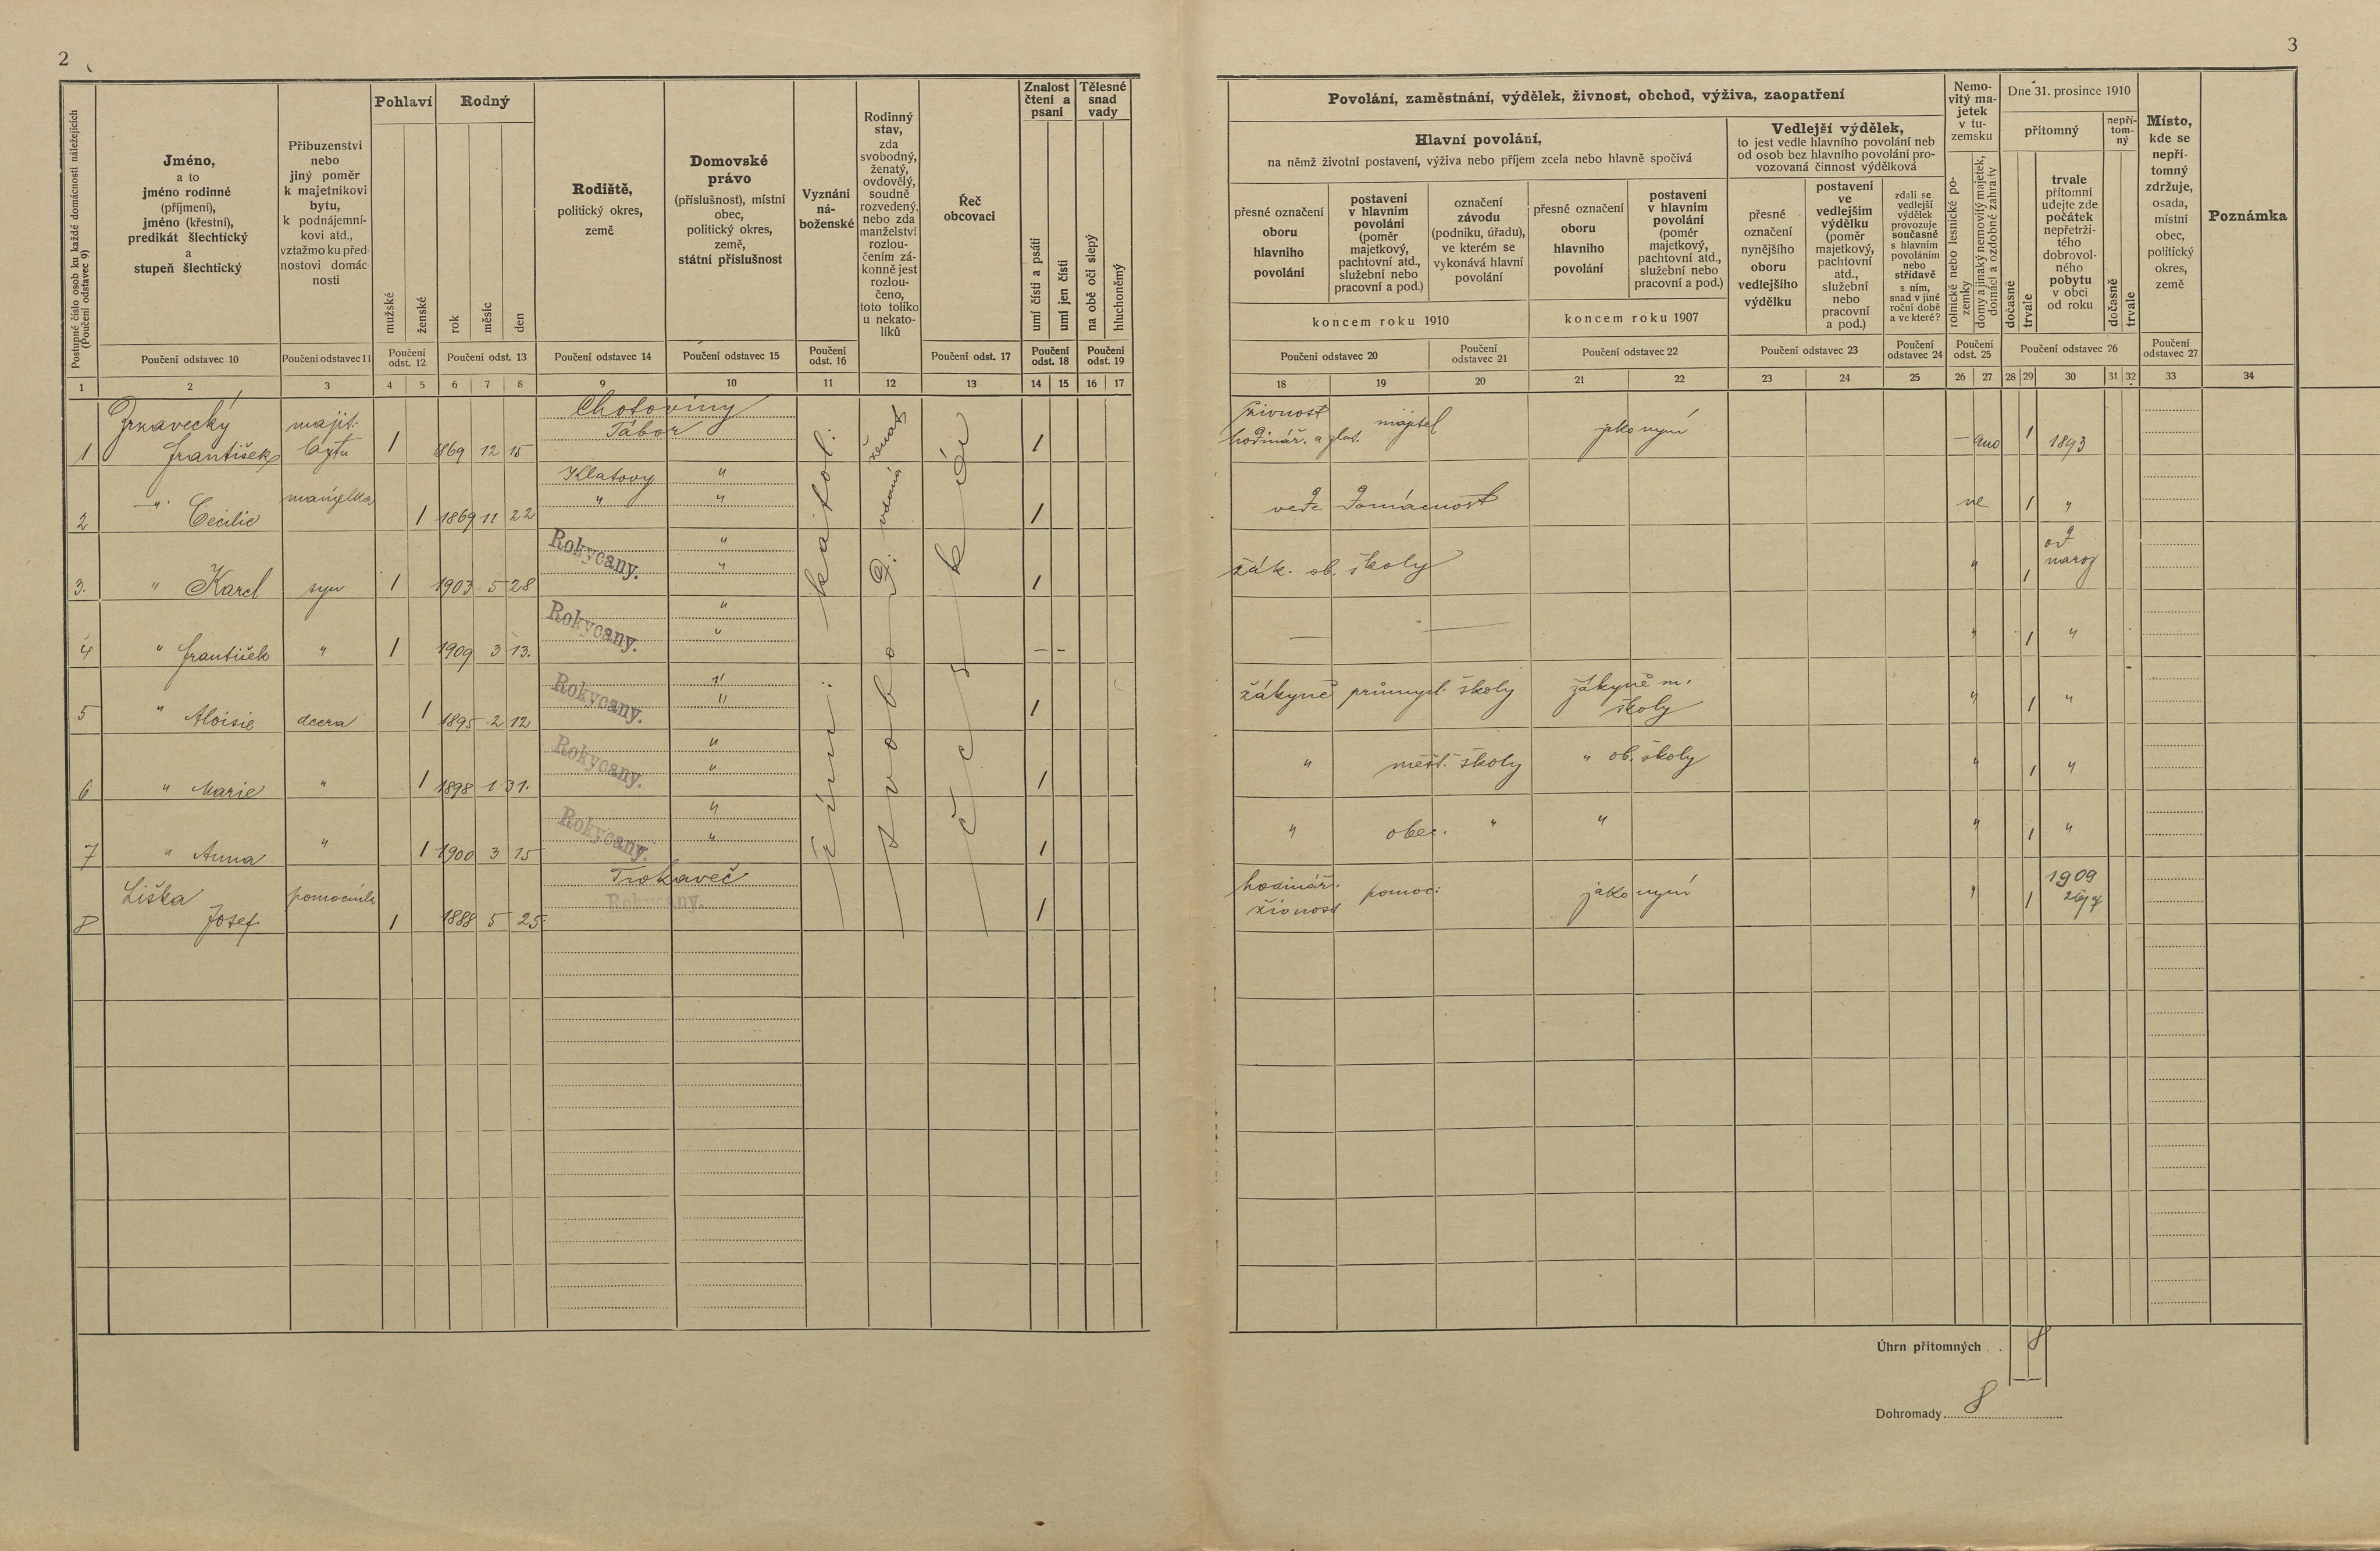 2
3
Postupné číslo osob ku každé domácnosti náležejících
(Poučení odstavec 9)
Jméno,
a to
jméno rodinné
(příjmení),
jméno (křestní),
predikát šlechtický
a
stupeň šlechtický
Příbuzenství
nebo
jiný poměr
k majetníkovi
bytu,
k podnájemní-
kovi atd.,
vztažmo ku před-
nostovi domác-
nosti
Pohlaví
mužské
ženské
Rodný
rok
měsíc
den
Rodiště,
politický okres,
země
Domovské
právo
(příslušnost), místní
obec,
politický okres,
země,
státní příslušnost
Vyznání
ná-
boženské
Rodinný
stav,
zda
svobodný,
ženatý,
ovdovělý,
soudně
rozvedený,
nebo zda
manželství
rozlou-
čením zá-
konně jest
rozlou-
čeno,
toto toliko
u nekato-
líků
Řeč
obcovací
Znalost
čtení a
psaní
umí čísti a psáti
umí jen čísti
Tělesné
snad
vady
na obě oči slepý
hluchoněmý
Poučení odstavec 10
Poučení odstavec 11
Poučení
odst. 12
Poučení odst. 13
Poučení odstavec 14
Poučení odstavec 15
Poučení
odst. 16
Poučení odst. 17
Poučení
odst. 18
Poučení
odst. 19
1 2 3 4 5 6 7 8 9 10 11 12 13 14 15 16 17
Povolání, zaměstnání, výdělek, živnost, obchod, výživa, zaopatření
Hlavní povolání,
na němž životní postavení, výživa nebo příjem zcela nebo hlavně spočívá
přesné označení
oboru
hlavního
povolání
postavení
v hlavním
povolání
(poměr
majetkový,
pachtovní atd.,
služební nebo
pracovní a pod.)
označení
závodu
(podniku, úřadu),
ve kterém se
vykonává hlavní
povolání
koncem roku 1910
přesné označení
oboru
hlavního
povolání
postavení
v hlavním
povolání
(poměr
majetkový,
pachtovní atd.,
služební nebo
pracovní a pod.)
koncem roku 1907
Vedlejší výdělek,
to jest vedle hlavního povolání neb
od osob bez hlavního povolání pro-
vozovaná činnost výdělková
přesné
označení
nynějšího
oboru
vedlejšího
výdělku
postavení
ve
vedlejším
výdělku
(poměr
majetkový,
pachtovní
atd.,
služební
nebo
pracovní
a pod.)
zdali se
vedlejší
výdělek
provozuje
současně
s hlavním
povoláním
nebo
střídavě
s ním,
snad v jiné
roční době
a ve které?
Nemo-
vitý ma-
jetek
v tu-
zemsku
rolnické nebo lesnické po-
zemky
domy a jinaký nemovitý majetek,
domácí a ozdobné zahrady
Dne 31. prosince 1910
přítomný
dočasně
trvale
trvale
přítomní
udejte zde
počátek
nepřetrži-
tého
dobrovol-
ného
pobytu
v obci
od roku
nepří-
tom-
ný
dočasně
trvale
Místo,
kde se
nepří-
tomný
zdržuje,
osada,
místní
obec,
politický
okres,
země
Poznámka
Poučení odstavec 20
Poučení
odstavec 21
Poučení odstavec 22
Poučení odstavec 23
Poučení
odstavec 24
Poučení
odst. 25
Poučení odstavec 26
Poučení
odstavec 27
18 19 20 21 22 23 24 25 26 27 28 29 30 31 32 33 34
Zrnavecký majit. Chotoviny
Tábor
1 František bytu 1 1869 12 15 1
Klatovy "
" manželka " "
2 Cecilie 1 1869 11 22 1
Rokycany. "
"
3. " Karel syn 1 1903 5 28 1
Rokycany. "
"
4 " František " 1 1909 3 13. – –
Rokycany. "
"
5 " Aloisie dcera 1 1895 2 12 1
Rokycany. "
"
6 " Marie " 1 1898 1 31. 1
Rokycany. "
"
7 " Anna " 1 1900 3 15 1
Liška pomocník Trokaveč
Rokycany.
8 Josef 1 1888 5 25. 1
říms: katol:
ženat
vdaná
svobod:
česká
živnost majitel jako nyní
hodinář. a zlat. – ano 1 1893
vede domácnost ne 1 "
žák. ob. školy " 1 od
naroz
— — " 1 "
žákyně průmysl. školy žákyně m.
školy " 1 "
" měšt. školy " ob. školy " 1 "
" obec. " " " 1 "
hodinář. pomoc: jako nyní " 1 1909
živnost
Úhrn přítomných . . 8
Dohromady 8